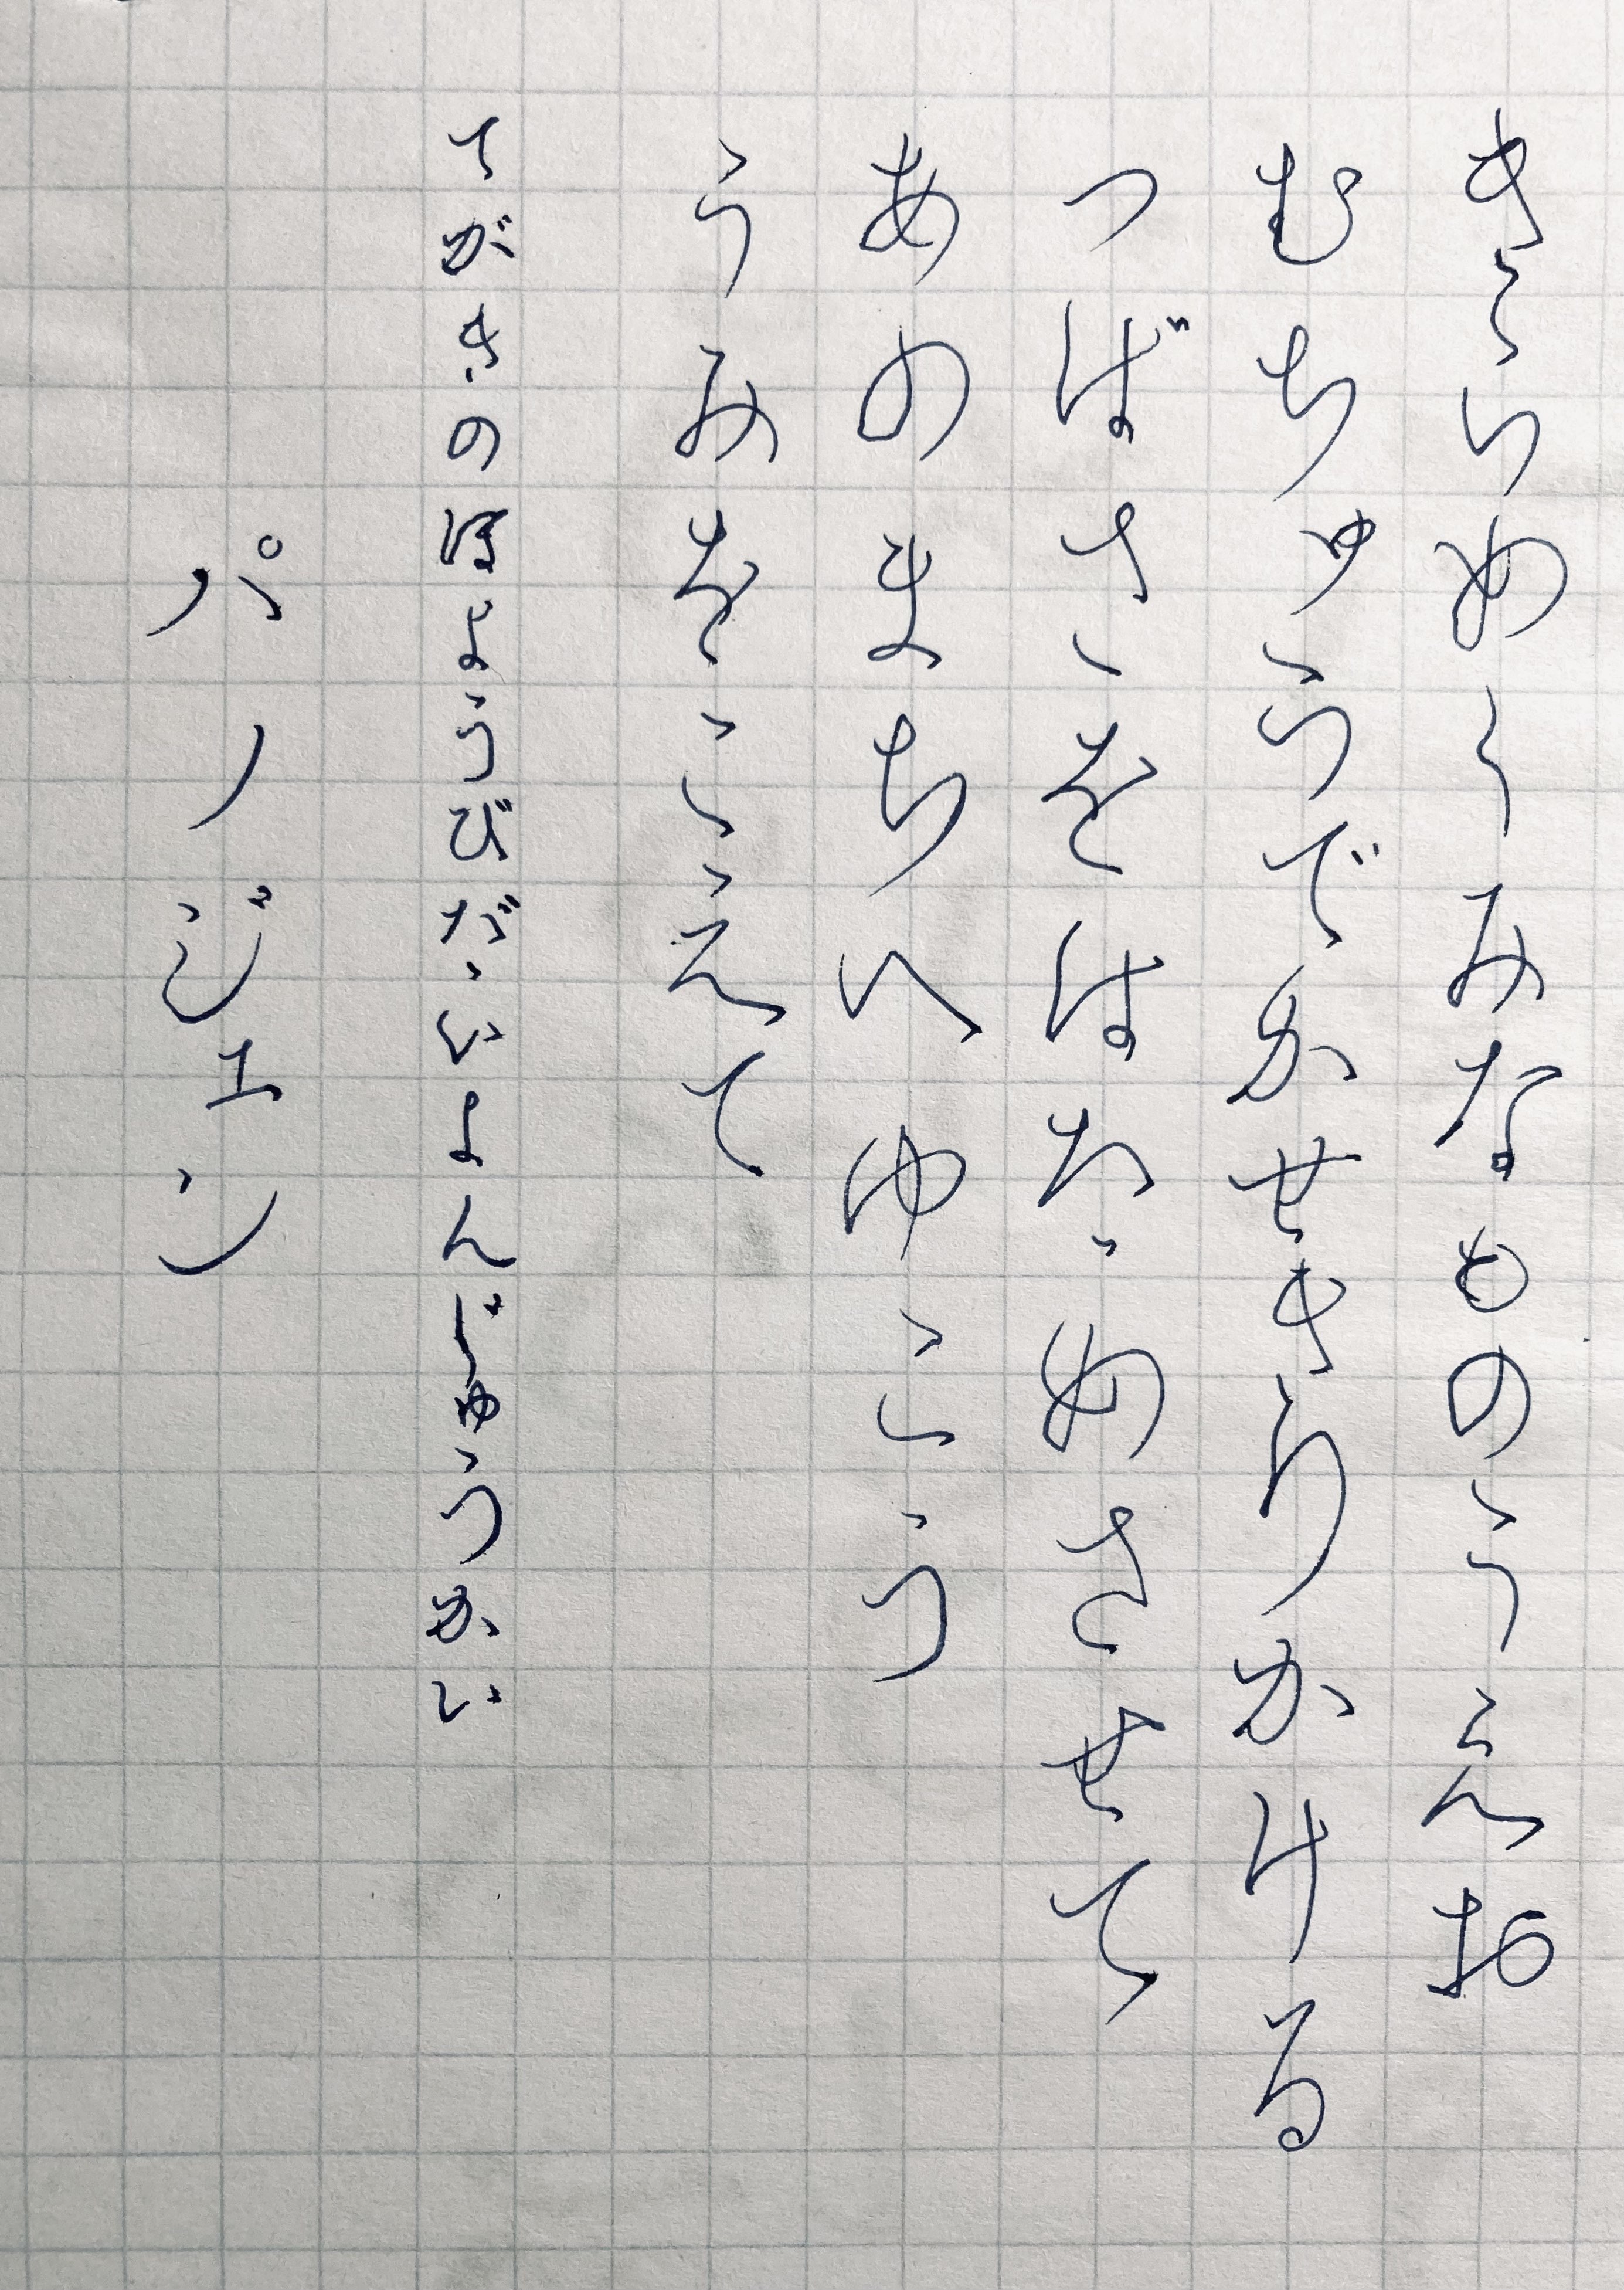 きらめくみなものうえお
むちゅうでかせきりかける
つばさをはためさせて
あのまちへゆこう
うみをこえて
てがきのほようびだいよんじゅうかい
パノジェン